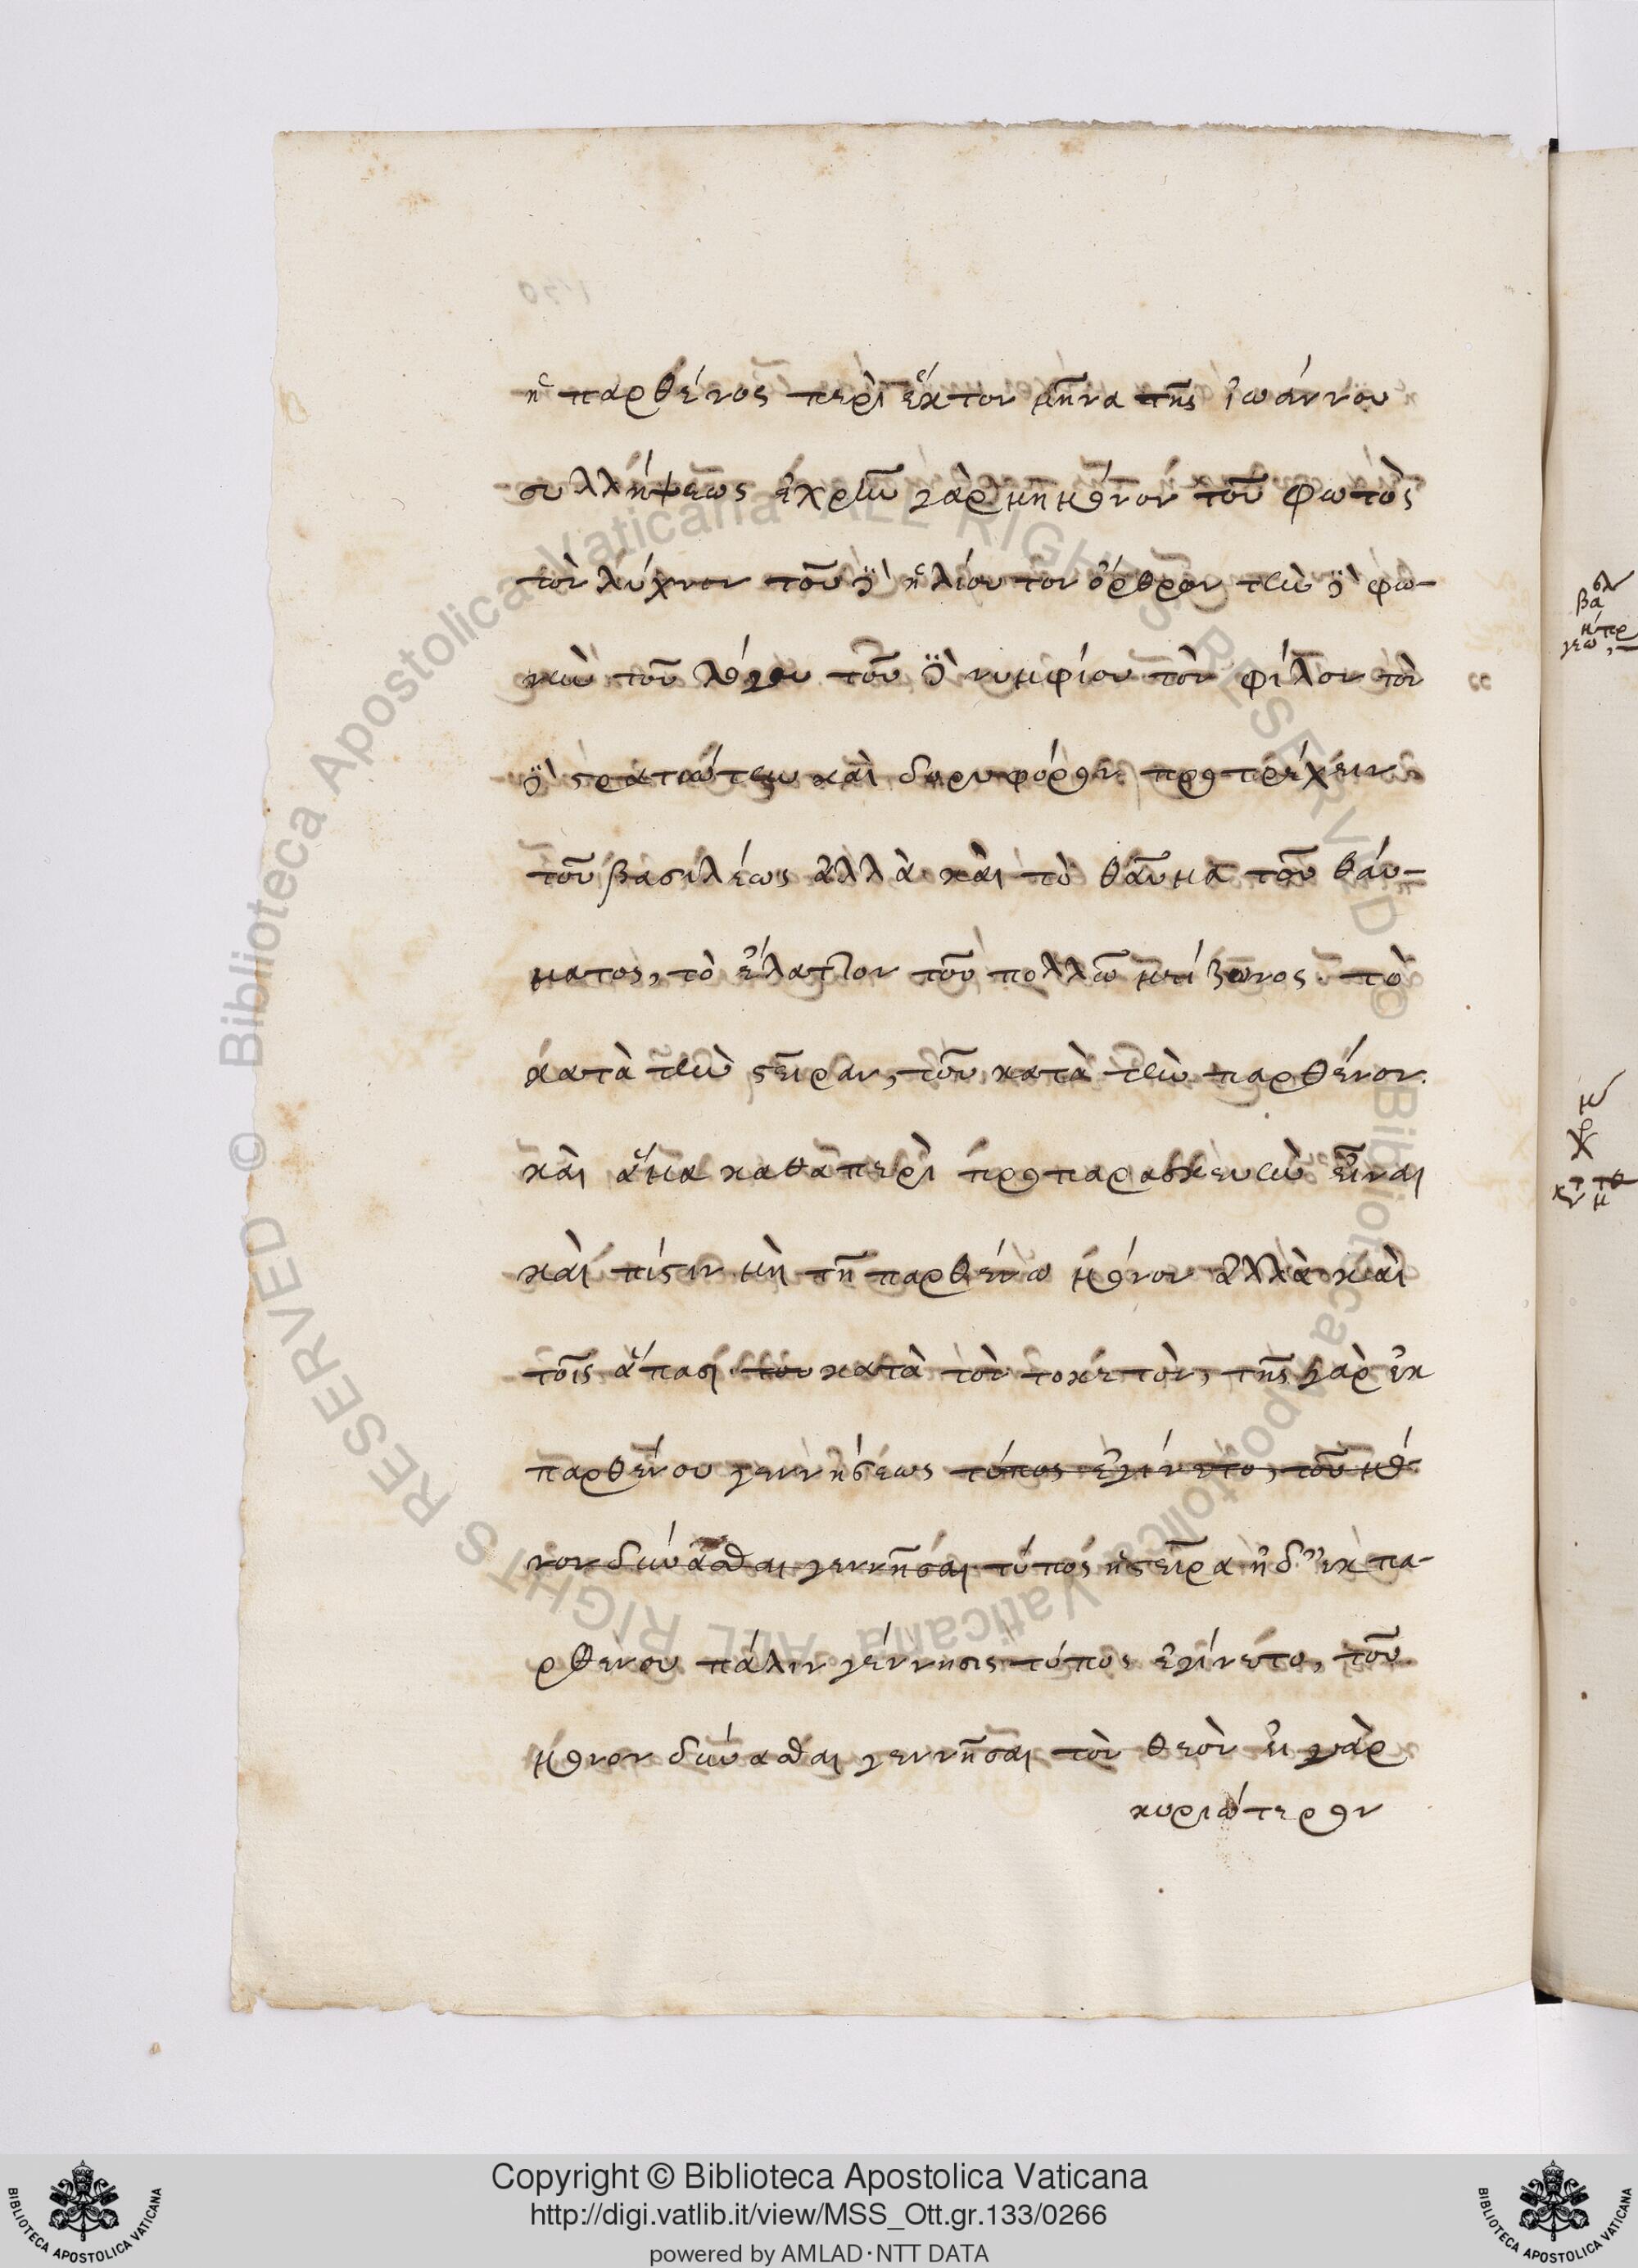 ἡ παρθένος περὶ ἕκτον μῆνα τῆς ἰωάννου
συλλήψεως ἐχρῆν γὰρ μὴ μόνον τοῦ φωτὸς
τὸν λύχνον τοῦ δὲ ἡλίου τὸν ὄρθρον τὴν δὲ φω-
νὴν τοῦ λόγου τοῦ δὲ νυμφίου τὸν φίλον τὸν
δὲ στρατιώτην καὶ δορυφόρον προτρέχειν
τοῦ βασιλέως ἀλλὰ καὶ τὸ θαῦμα τοῦ θαύ-
ματος, τὸ ἔλαττον τοῦ πολλῶ μείζονος. τὸ
κατὰ τὴν στεῖραν, τοῦ κατὰ τὴν παρθένον.
καὶ ἅμα καθαπερὶ προπαρασκευὴν εἶναι
καὶ πίστιν μὴ τῆ παρθένω μόνον ἀλλὰ καὶ
τοῖς ἅπασι του κατὰ τὸν τοκετὸν, τῆς γὰρ ἐκ
παρθένου γεννήσεως τύπος ἐγίνετο, τοῦ μό-
νον δύνασθαι γεννῆσαι τύπος ἡ στεῖρα ἡ δ' ἐκ πα-
ρθένου πάλιν γέννησις τύπος ἐγίνετο, τοῦ
μόνον δύνασθαι γεννῆσαι τὸν θεὸν εἰ γὰρ
κυριώτερον
Copyright © Biblioteca Apostolica Vaticana
http://digi.vatlib.it/view/MSS_Ott.gr.133/0266
powered by AMLAD·NTT DATA